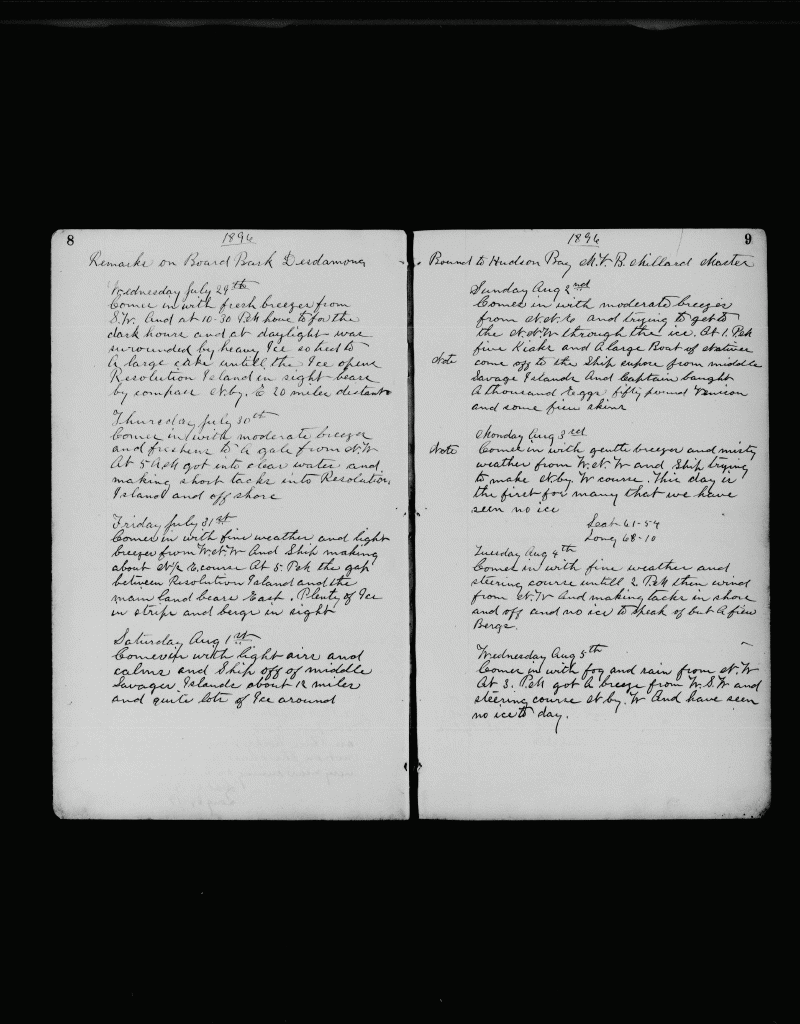 8
1896
Remarks on Board Bark Desdamona
Wednesday July 29th
Comes in with fresh breezes from
S.W. And at 10-30 PM hove to for the
dark hours and at daylight was
surrounded by heavy Ice so tied to
A large cake untill the Ice opens
Resolution Island in sight bears
by compass N. by. E 20 miles distant
Thursday July 30th
Comes in with moderate breezes
and freshens to A gale from N.W
At 5 AM got into clear water and
making short tacks into Resolution
Island and off shore
Friday July 31st
Comes in with fine weather and light
breezes from W.N.W And Ship making
about N/E course At 5. PM the gap
between Resolution Island and the
main land bears East. Plenty of Ice
in strips and bergs in sight
Saturday Aug 1st
Comes in with light airs and
calms and Ship off of middle
Savages Islands about 12 miles
and quite lots of Ice around
9
1896
Bound to Hudson Bay M.V.B. Millard Master
Sunday Aug 2nd
Comes in with moderate breezes
from and trying to get to
the N.N.W through the ice. At 1. PM
five Kiaks and A large Boat of natives
Note come off to the Ship supose from middle
Savage Islands And Captain bought
A thousand Eggs fifty pound Venison
and some few skins
Monday Aug 3rd
Note Comes in with gentle breezes and misty
weather from W.N.W and Ship trying
to make N. by W course. This day is
the first for many that we have
seen no ice
Leat 61-54
Long 68-10
Tuesday Aug 4th
Comes in with fine weather and
steering course untill 2 PM then wind
from N.W And making tacks in shore
and off and no ice to speak of but A few
Bergs.
Wednesday Aug 5th
Comes in with fog and rain from N.W
At 3. PM got A breeze from W.S.W and
steering course N by. W And have seen
no ice to day.